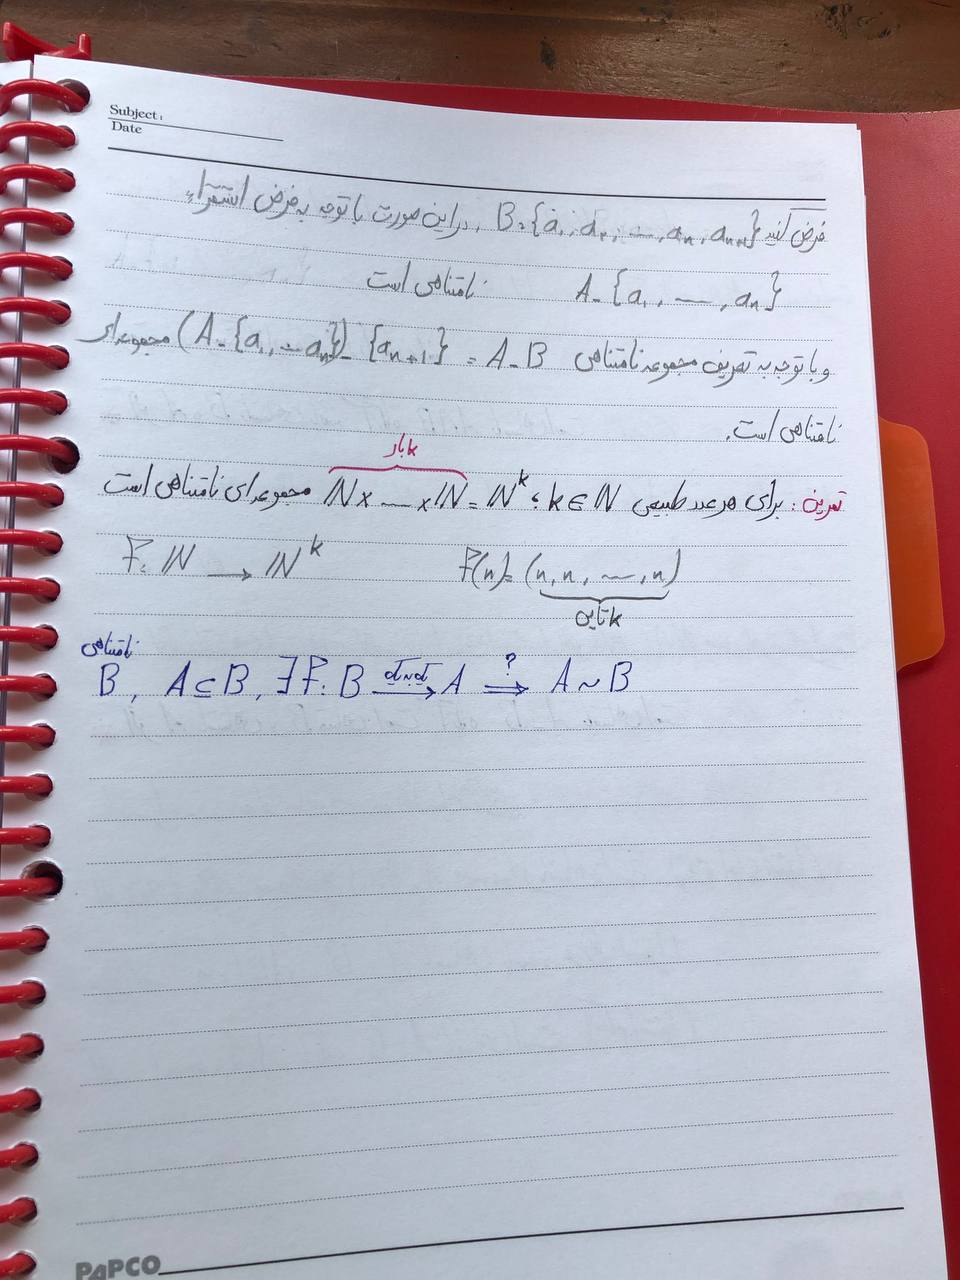 Subject:
Date
فرض کنید B = {a₁, a₂, ..., aₙ, aₙ₊₁} در این صورت با توجه به فرض استقراء
A - {a₁, ..., aₙ} نامتناهی است
و با توجه به تعریف مجموعه نامتناهی (A - {a₁, ... aₙ}) - {aₙ₊₁} = A - B مجموعه‌ای
نامتناهی است.
k بار
تمرین: برای هر عدد طبیعی ℕ × ... × ℕ = ℕᵏ ; k ∈ ℕ مجموعه‌ای نامتناهی است
f: ℕ → ℕᵏ f(n) = (n, n, ..., n)
k تایی
نامتناهی
B, A ⊆ B, ∃ f: B یک به یک→ A ?⇒ A ~ B
PAPCO